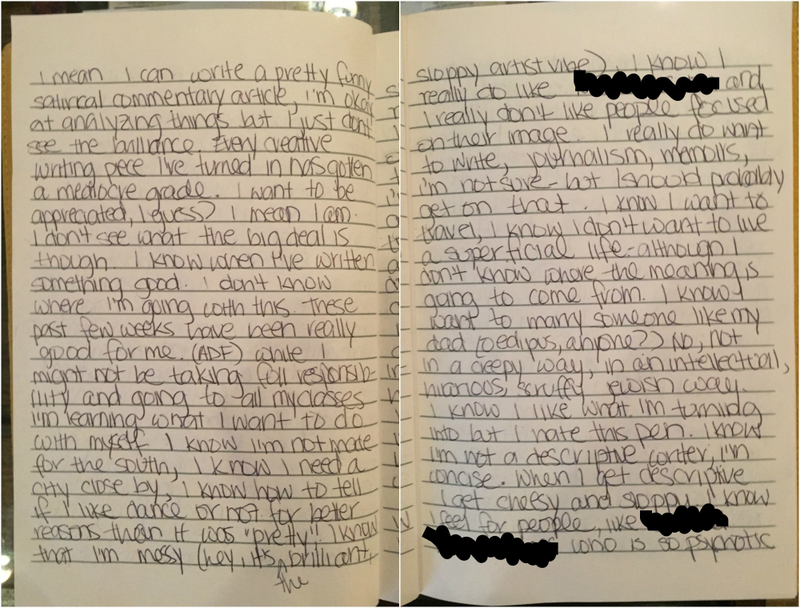 I mean I can write a pretty funny
satirical commentary article, I'm okay
at analyzing things but I just don't
see the brilliance. Every creative
writing pece I've turned in has gotten
a mediocre grade. I want to be
appreciated, I guess? I mean I am.
I don't see what the big deal is
though. I know when I've written
something good. I don't know
where I'm going with this. These
past few weeks have been really
good for me. (ADF) While I
might not be taking full responsib-
ility and going to all my classes
I'm learning what I want to do
with myself. I know I'm not made
for the south, I know I need a
city close by, I know how to tell
if I like dance or not for better
reasons than it was "pretty" I know
that I'm messy (hey, it's the brilliant,
sloppy artist vibe). I know I
really do like and
I really don't like people focused
on their image. I really do want
to write, journalism, manolls,
I'm not sure - but I should probably
get on that. I know I want to
travel, I know I don't want to live
a superficial life - although I
don't know where the meaning is
going to come from. I know I
want to marry someone like my
dad (oedipus, anyone?) No, not
in a creepy way, in an intellectual,
hilarious, scruffy jewish way.
I know I like what I'm turning
into but I hate this pen. I know
I'm not a descriptive writer, I'm
concise. When I get descriptive
I get cheesy and sloppy. I know
I feel for people, like
who is so psychotic